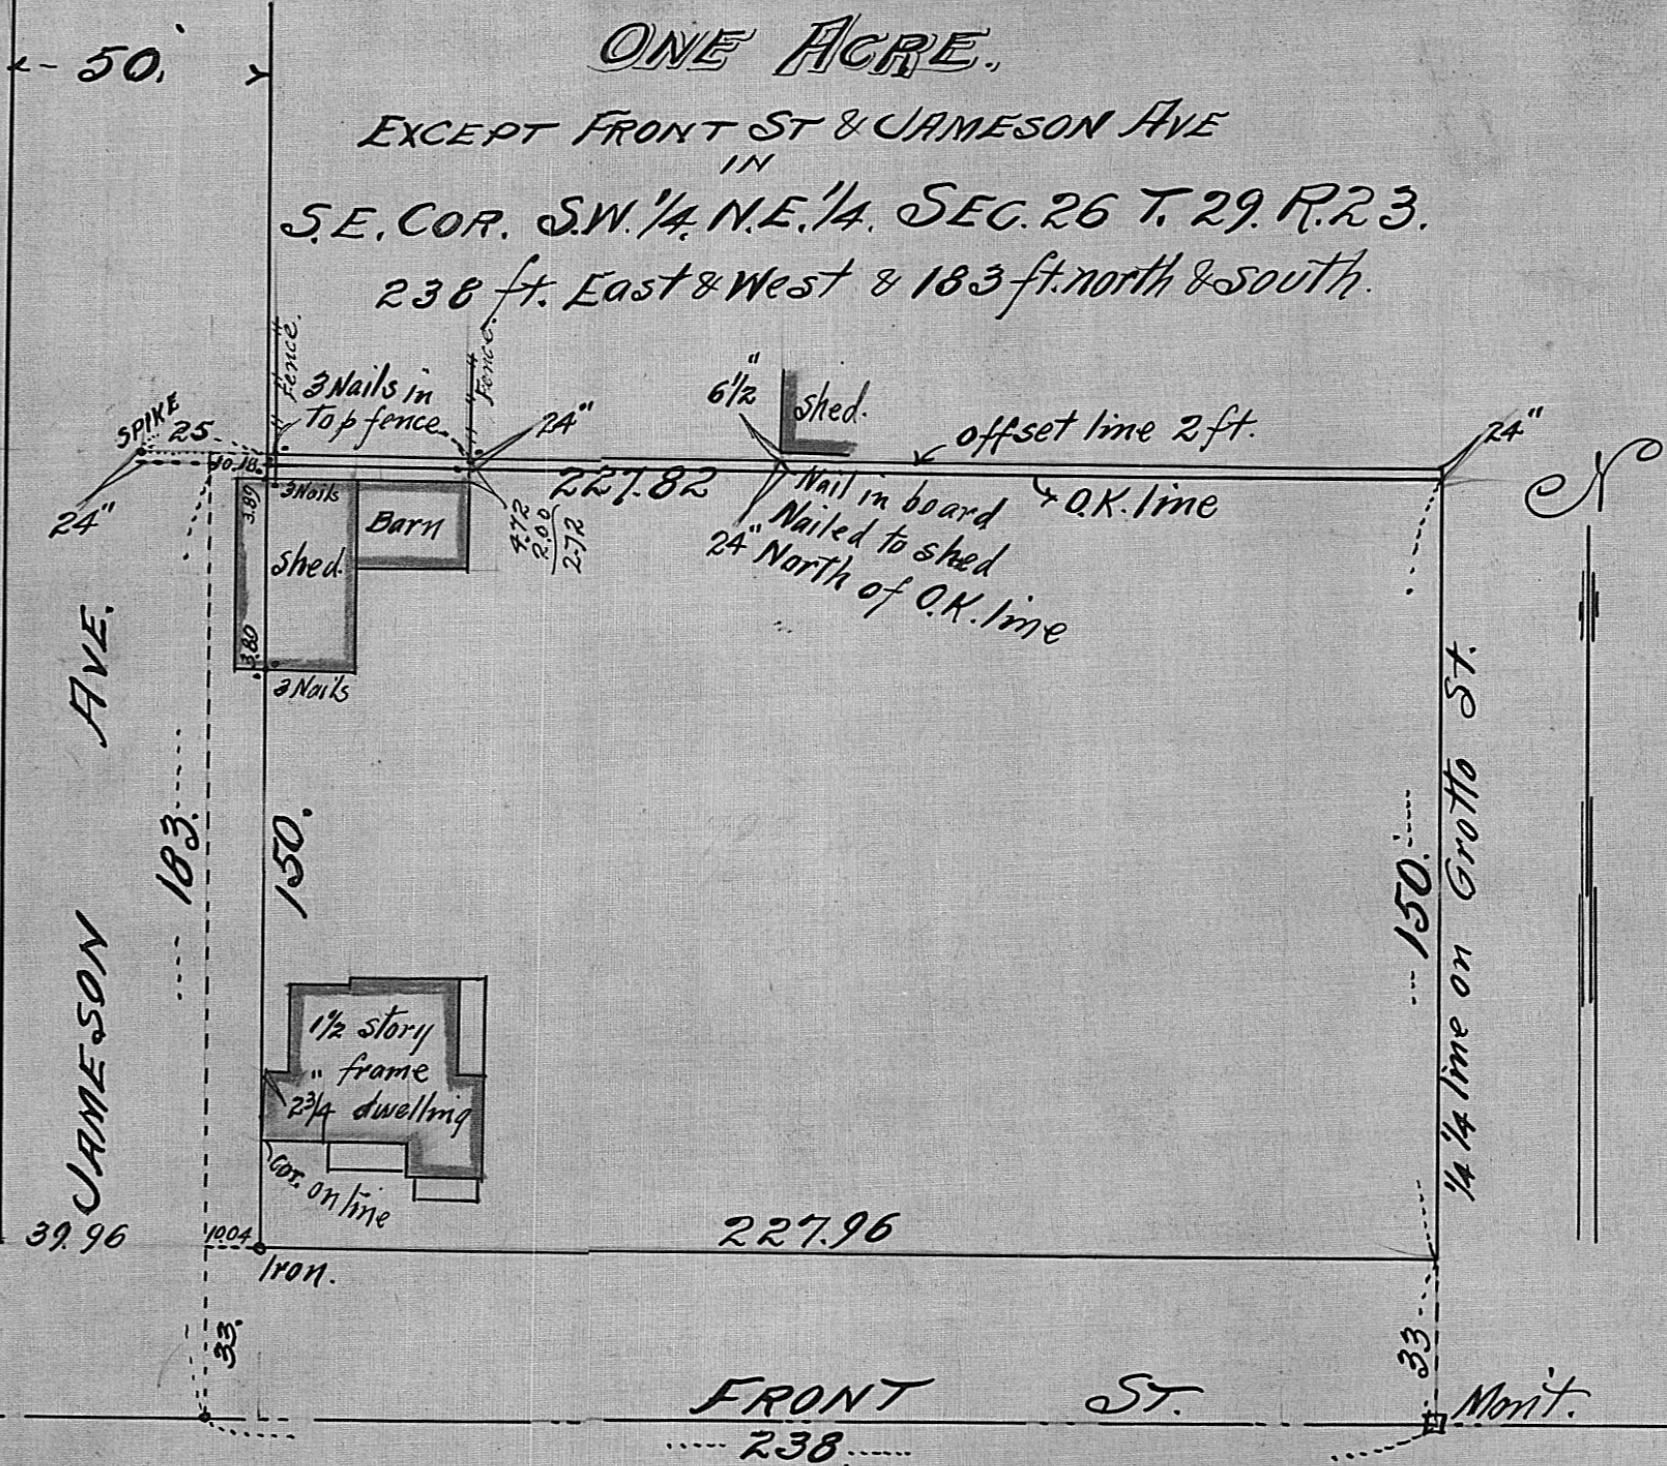 50.
ONE ACRE.
EXCEPT FRONT ST & JAMESON AVE
IN
S.E. COR. S.W. 1/4. N.E. 1/4. SEC. 26 T. 29. R. 23.
238 ft. East & West & 183 ft. north & south.
Fence.
Fence.
3 Nails in
Top fence
24"
6 1/2"
shed.
offset line 2 ft.
24"
SPIKE
25
10.18
24"
3 Nails
3.89
shed.
Barn
3.80
3 Nails
4.72
2.00
2.72
227.82
Nail in board
Nailed to shed
24" North of O.K. line
O.K. line
N
JAMESON AVE.
183.
150.
150.
1/4 1/4 line on Grotto St.
1 1/2 story
frame
dwelling
2 3/4"
Cor. on line
39.96
10.04
Iron.
227.96
33.
33
FRONT ST.
Mon't.
238